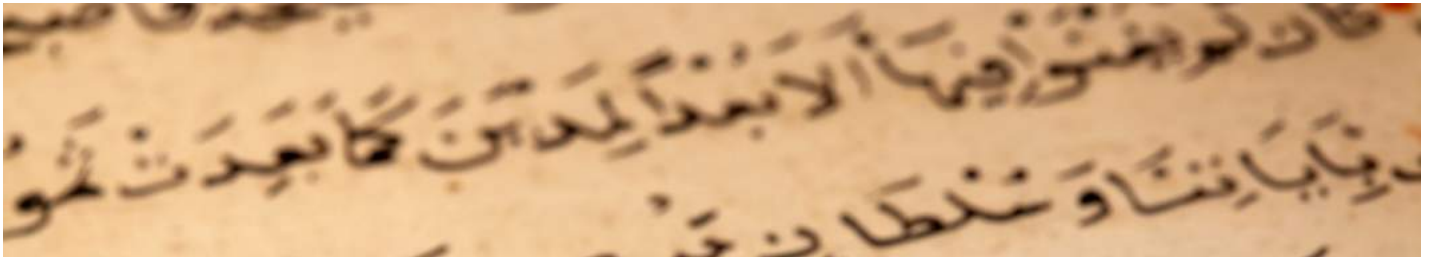 كَأَن لَّمْ يَغْنَوْا فِيهَا أَلَا بُعْدًا لِمَدْيَنَ كَمَا بَعِدَتْ ثَمُو
بِآيَاتِنَا وَسُلْطَانٍ